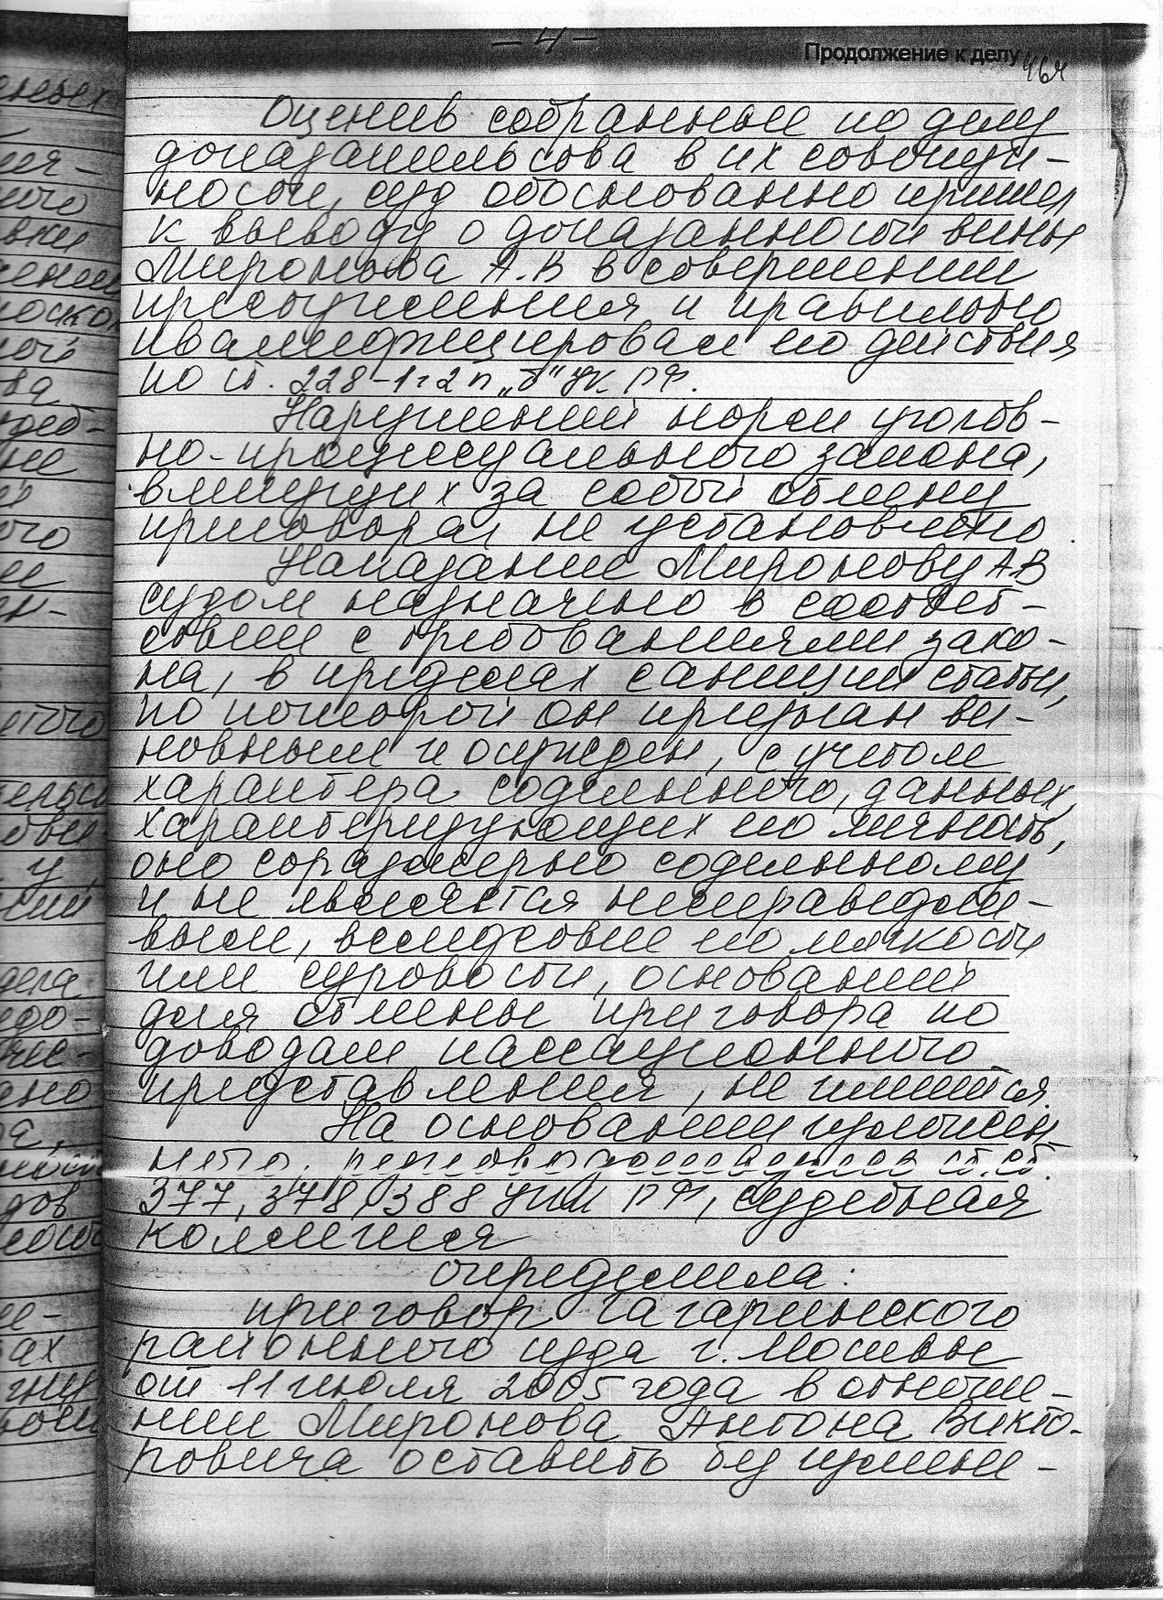 - 4 -
Продолжение к делу 464
Оценив собранные по делу
доказательства в их совокуп-
ности, суд обоснованно пришел
к выводу о доказанности вины
Миронова А.В в совершении
преступления и правильно
квалифицировал его действия
по ст. 228-1 ч 2 п „б" УК РФ.
Нарушений норм уголов-
но-процессуального закона,
влекущих за собой отмену
приговора, не установлено.
Наказание Миронову А.В
судом назначено в соответ-
ствии с требованиями зако-
на, в пределах санкции статьи,
по которой он признан ви-
новным и осужден, с учетом
характера содеянного, данных,
характеризующих его личность,
оно соразмерно содеянному
и не является несправедли-
вым, вследствие его мягкости
или суровости, оснований
для отмены приговора по
доводам кассационного
представления, не имеется.
На основании изложен
ного, руководствуясь ст.ст.
377, 378, 388 УПК РФ, судебная
коллегия
определила:
приговор Гагаринского
районного суда г. Москвы
от 11 июля 2005 года в отноше-
нии Миронова Антона Викто-
ровича оставить без измене-